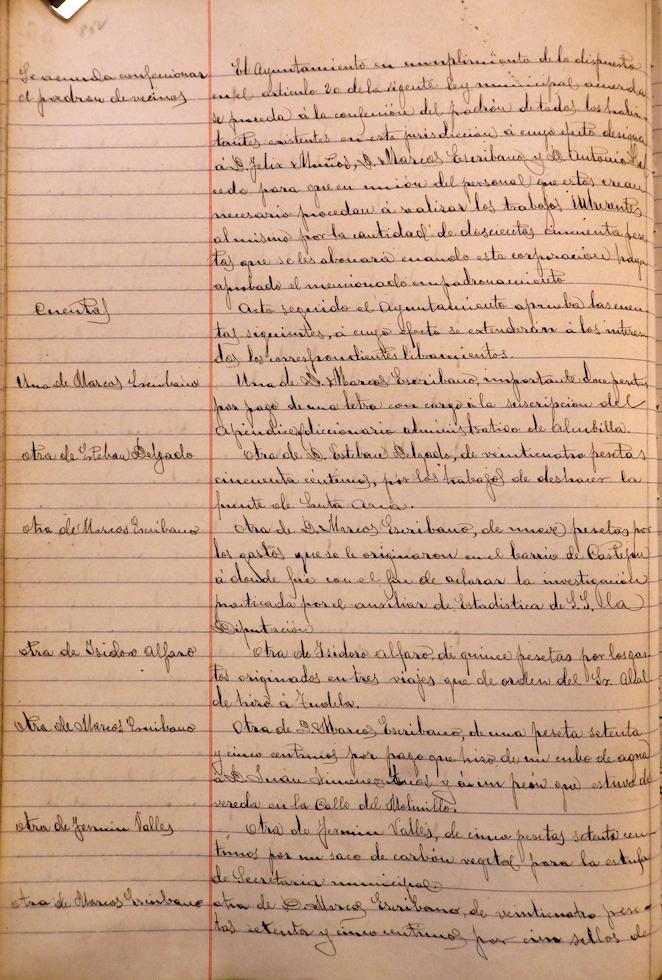 Se acuerda confeccionar
el padron de vecinos
El Ayuntamiento en cumplimiento de lo dispuesto
en el articulo 20 de la vigente Ley municipal, acuerda
se proceda á la confección del padrón de todos los habi-
tantes existentes en esta jurisdiccion á cuyo efecto designa
á D. Felix Muños, D. Marcos Escribano y D. Antonio
cedo para que en unión del personal que estos crean
necesario procedan á realizar los trabajos inherentes
al mismo por la cantidad de doscientas cincuenta pese-
tas que se les abonará cuando esta corporación haya
aprobado el mencionado empadronamiento
Cuentas
Acto seguido el Ayuntamiento aprueba las cuen-
tas siguientes, á cuyo efecto se extenderán á los interesa-
dos los correspondientes libramientos.
Una de Marcos Escribano
Una de D. Marcos Escribano, importante doce pesetas
por pago de una letra con cargo á la suscripcion del
Apendice diccionario administrativo de Alcubilla.
Otra de Esteban Delgado
Otra de D. Esteban Delgado, de veinticuatro pesetas
cincuenta centimos, por los trabajos de deshacer la
fuente de Santa Ana.
Otra de Marcos Escribano
Otra de D. Marcos Escribano, de nueve pesetas por
los gastos que se le originaron en el barrio de Castejon
á donde fué con el fin de aclarar la investigación
practicada por el auxiliar de Estadistica de la
Diputación
Otra de Isidoro Alfaro
Otra de Isidoro Alfaro, de quince pesetas por los gas-
tos originados en tres viajes que de orden del Sr. Alcal-
de hizo á Tudela.
Otra de Marcos Escribano
Otra de D. Marcos Escribano, de una peseta setenta
y cinco centimos por pago que hizo de un cubo de agua
á D. Juan Jimenez y á un peón que estuvo de
vereda en la Calle del Molinillo.
Otra de Fermin Valles
Otra de Fermin Vallés, de cinco pesetas setenta cen-
timos por un saco de carbón vegetal para la estufa
de Secretaria municipal.
Otra de Marcos Escribano
Otra de D. Marcos Escribano, de veinticuatro pese-
tas setenta y cinco centimos por cien sellos de